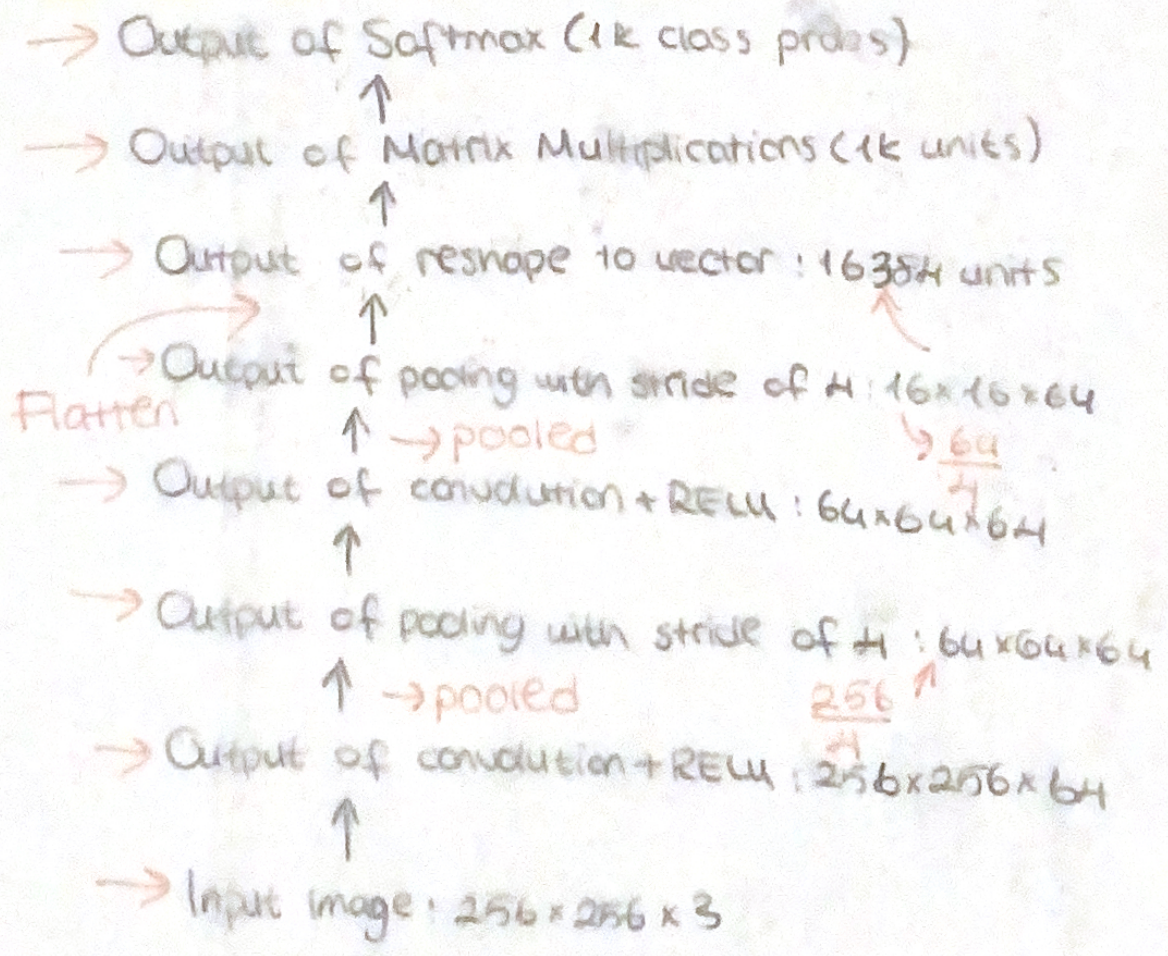 → Output of Softmax (1k class probs)
↑
→ Output of Matrix Multiplications (1k units)
↑
→ Output of reshape to vector : 16384 units
↑
→ Output of pooling with stride of 4 : 16×16×64
Flatten
↑ → pooled
64
4
→ Output of convolution + RELU : 64×64×64
↑
→ Output of pooling with stride of 4 : 64×64×64
↑ → pooled
256
4
→ Output of convolution + RELU : 256×256×64
↑
→ Input image : 256×256×3